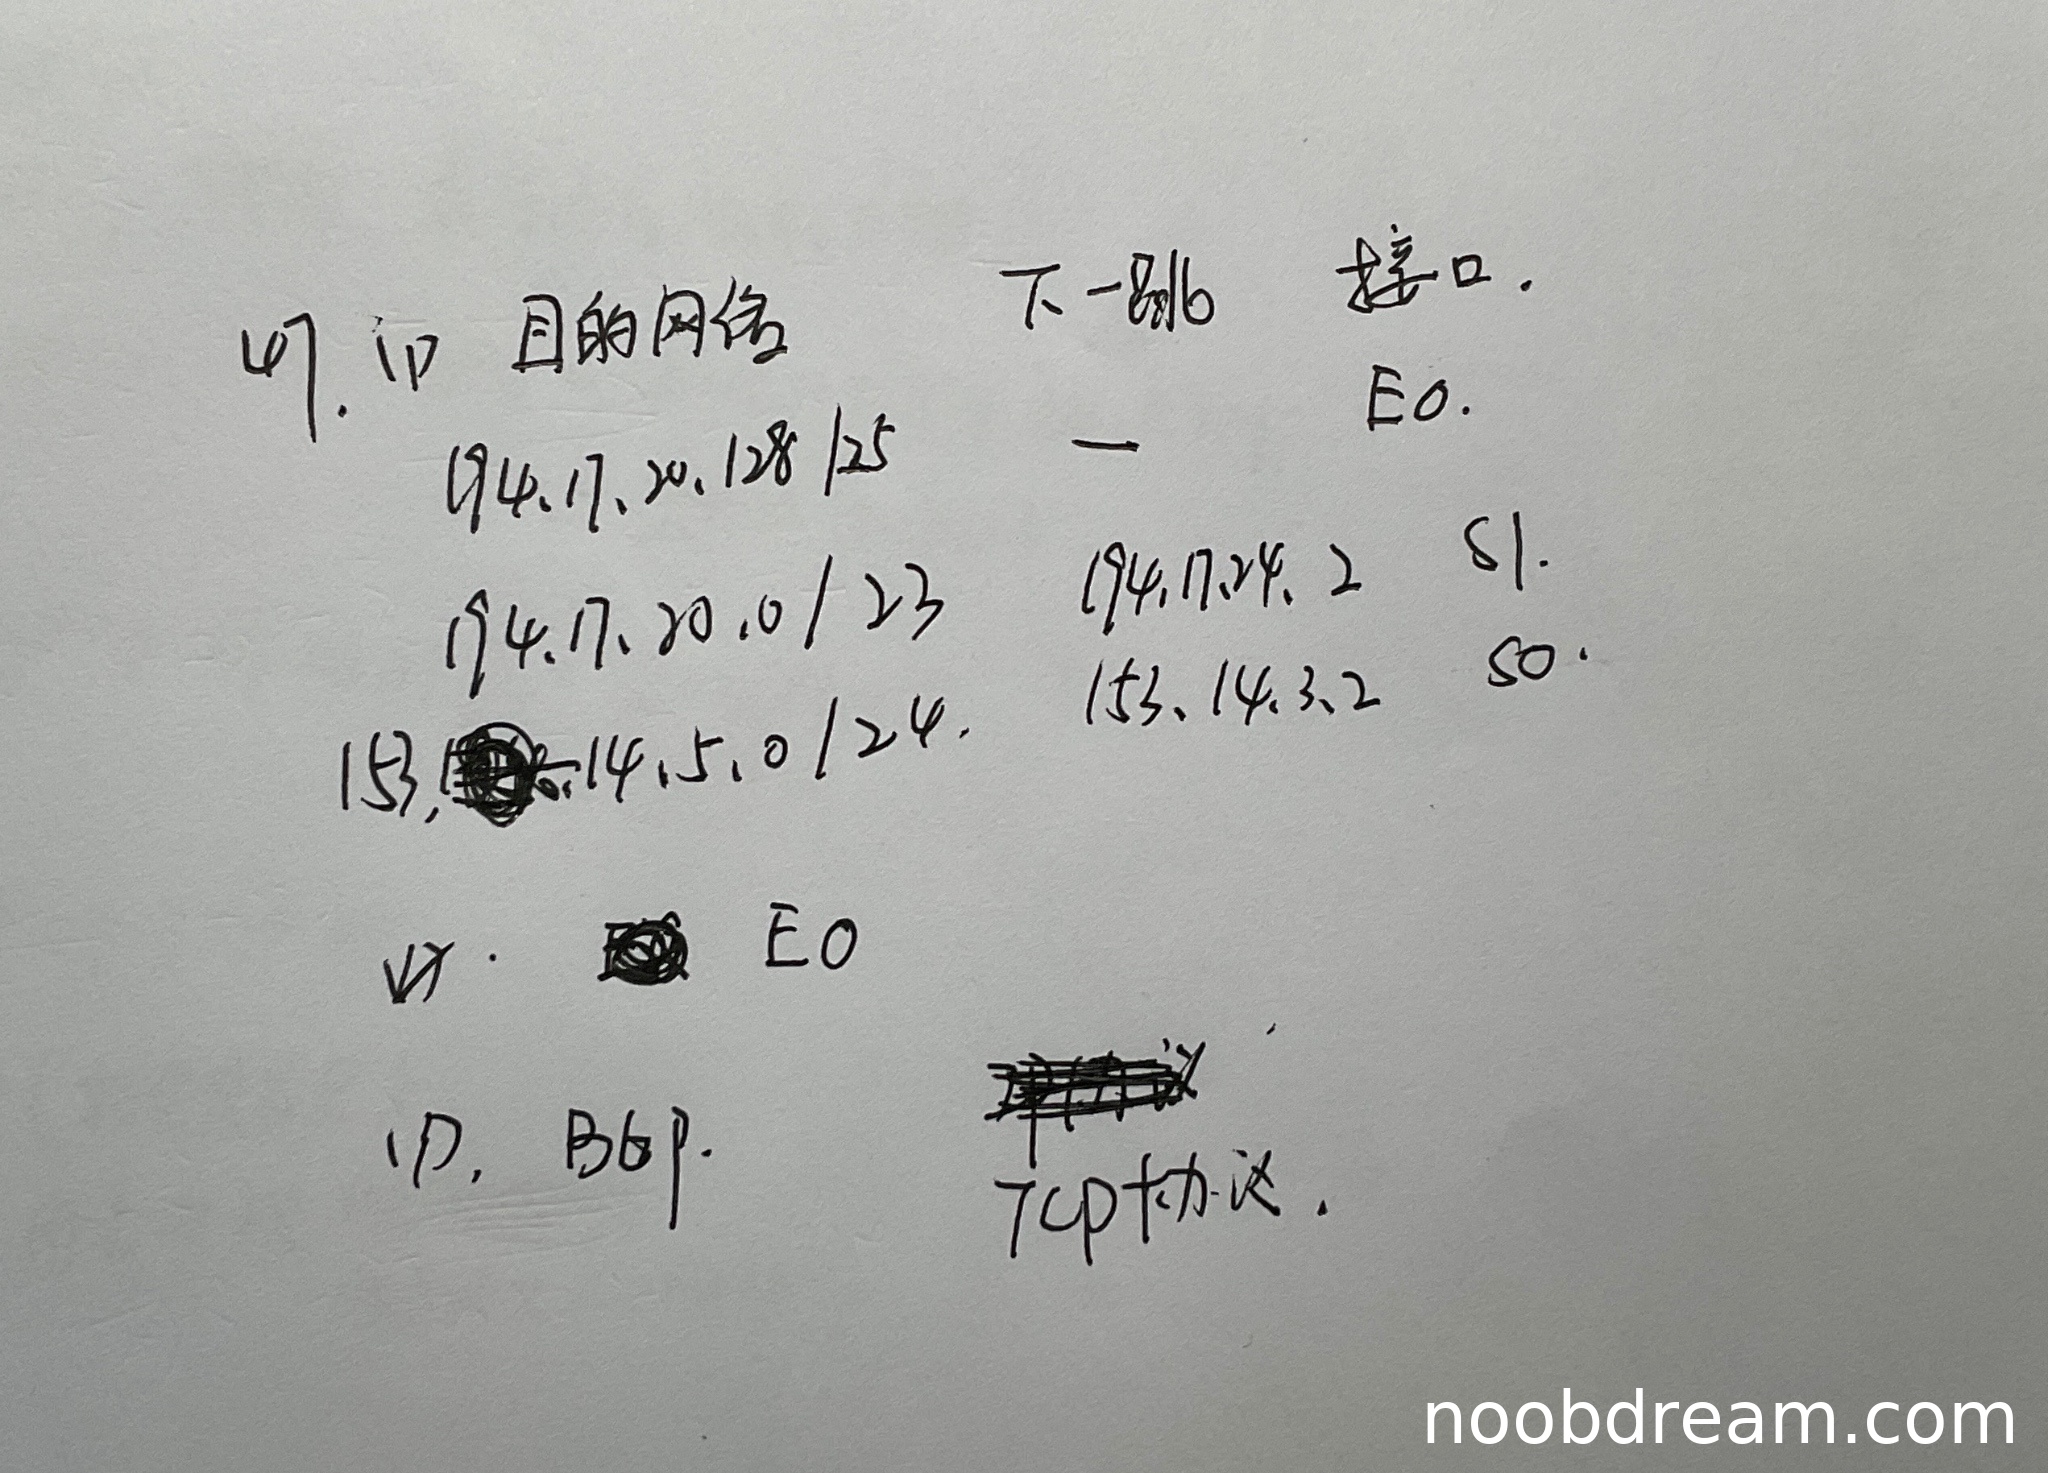 47. (1) 目的网络 下一跳 接口.
194.17.20.128/25 — E0.
194.17.20.0/23 194.17.24.2 S1.
153.14.5.0/24. 153.14.3.2 S0.
E0
BGP. TCP协议.
noobdream.com